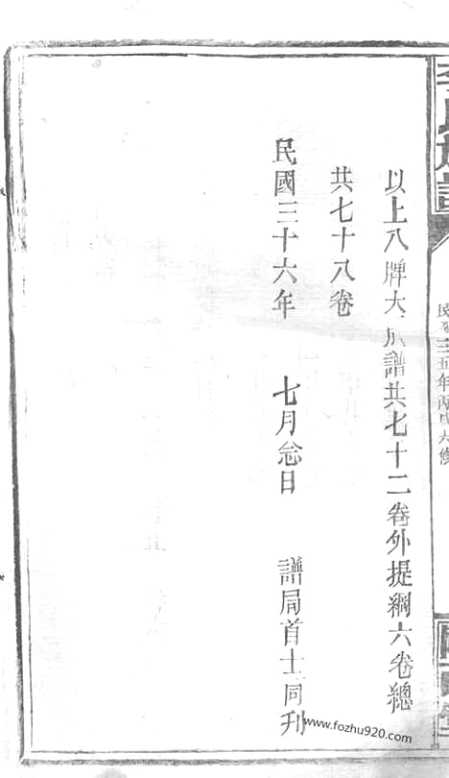 民國三五年丙戌六修
以上八牌大成譜共七十二卷外提綱六卷總
共七十八卷
民國三十六年 七月念日 譜局首士同刋
www.fozhu920.com